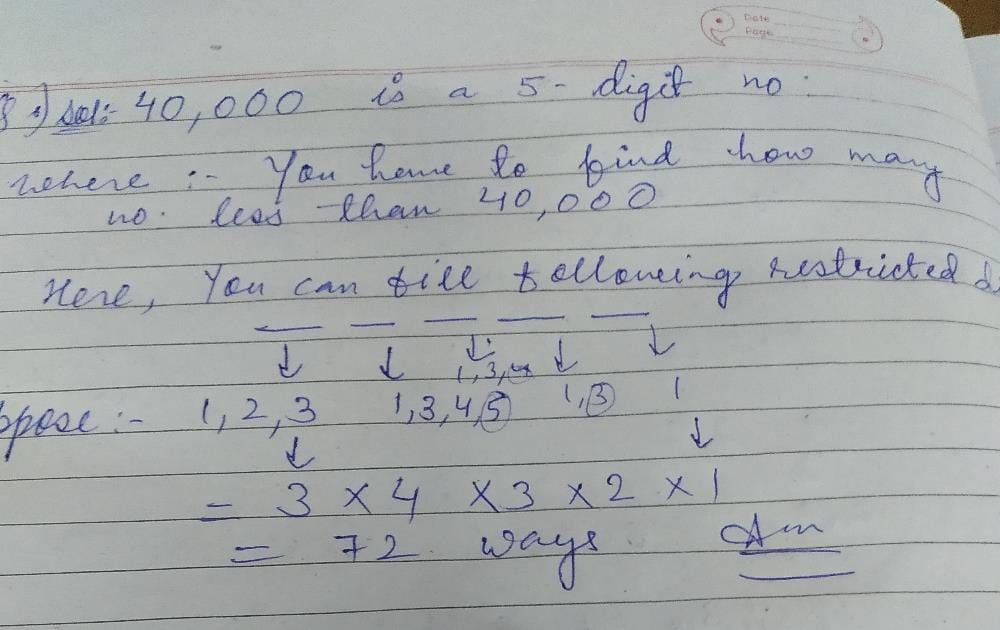 Date
Page
1) Sol:- 40,000 is a 5-digit no:
where :- You have to find how many
no. less than 40,000
Here, You can fill following restricted
1,3,4
ppose :- 1,2,3 1,3,4,5 1,3 1
= 3 × 4 × 3 × 2 × 1
= 72 ways Ans